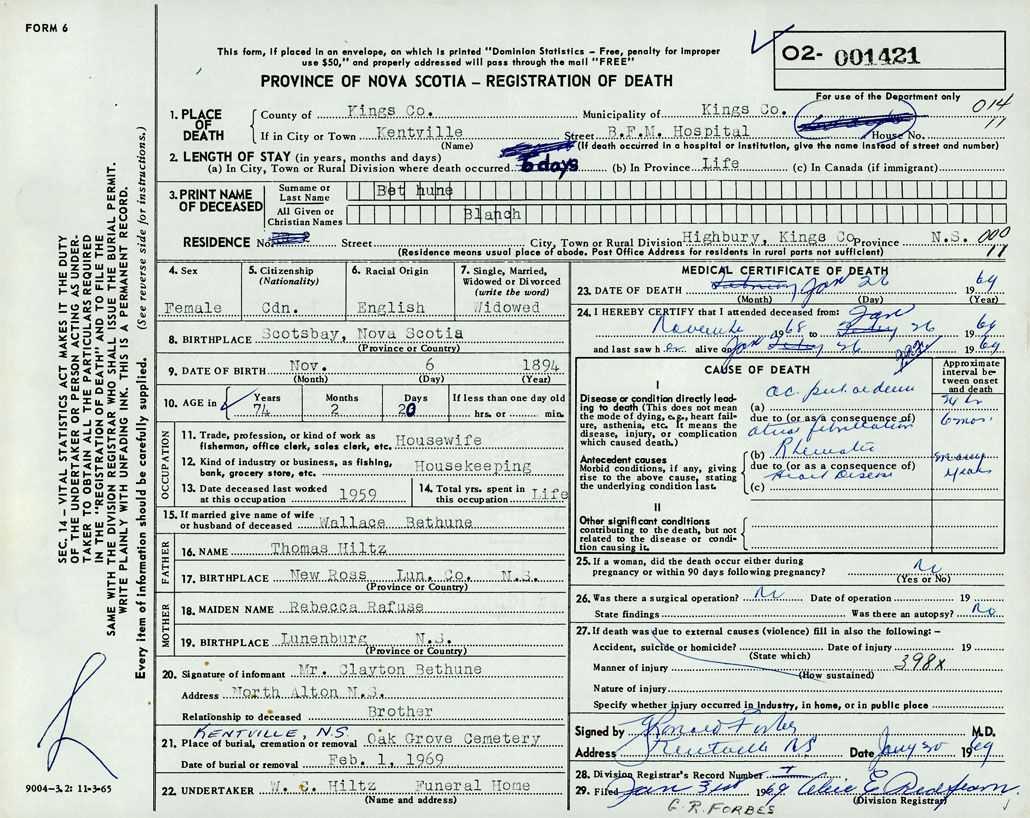 FORM 6
This form, if placed in an envelope, on which is printed "Dominion Statistics – Free, penalty for improper
use $50," and properly addressed will pass through the mail "FREE"
PROVINCE OF NOVA SCOTIA – REGISTRATION OF DEATH
O2- 001421
For use of the Department only
014
11
1. PLACE OF DEATH
County of Kings Co. Municipality of Kings Co.
If in City or Town Kentville Street B.F.M. Hospital House No.
(Name) (If death occurred in a hospital or institution, give the name instead of street and number)
2. LENGTH OF STAY (in years, months and days)
(a) In City, Town or Rural Division where death occurred 6 days (b) In Province Life (c) In Canada (if immigrant)
3. PRINT NAME OF DECEASED
Surname or Last Name Bethune
All Given or Christian Names Blanch
RESIDENCE No. Street City, Town or Rural Division Highbury, Kings Co Province N.S. 000
11
(Residence means usual place of abode. Post Office Address for residents in rural parts not sufficient)
4. Sex Female
5. Citizenship (Nationality) Cdn.
6. Racial Origin English
7. Single, Married, Widowed or Divorced (write the word) Widowed
8. BIRTHPLACE Scotsbay, Nova Scotia
(Province or Country)
9. DATE OF BIRTH Nov. 6 1894
(Month) (Day) (Year)
10. AGE in Years 74 Months 2 Days 20 If less than one day old
hrs. or min.
OCCUPATION
11. Trade, profession, or kind of work as fisherman, office clerk, sales clerk, etc. Housewife
12. Kind of industry or business, as fishing, bank, grocery store, etc. Housekeeping
13. Date deceased last worked at this occupation 1959
14. Total yrs. spent in this occupation Life
15. If married give name of wife or husband of deceased Wallace Bethune
FATHER
16. NAME Thomas Hiltz
17. BIRTHPLACE New Ross Lun. Co. N.S.
(Province or Country)
MOTHER
18. MAIDEN NAME Rebecca Rafuse
19. BIRTHPLACE Lunenburg N.S.
(Province or Country)
20. Signature of informant Mr. Clayton Bethune
Address North Alton N.S.
Relationship to deceased Brother
KENTVILLE, N.S.
21. Place of burial, cremation or removal Oak Grove Cemetery
Date of burial or removal Feb. 1, 1969
22. UNDERTAKER W. C. Hiltz Funeral Home
(Name and address)
MEDICAL CERTIFICATE OF DEATH
23. DATE OF DEATH Jan 26 1969
(Month) (Day) (Year)
24. I HEREBY CERTIFY that I attended deceased from:
November 1968 to Jan 26 1969
and last saw her alive on Jan 26 1969
CAUSE OF DEATH
Approximate interval between onset and death
I
Disease or condition directly leading to death (This does not mean the mode of dying, e.g., heart failure, asthenia, etc. It means the disease, injury, or complication which caused death.)
(a) ac. pul. oedema 24 hr
due to (or as a consequence of) 6 mos.
atrial fibrillation
Antecedent causes
Morbid conditions, if any, giving rise to the above cause, stating the underlying condition last.
(b) Rheumatic many years
due to (or as a consequence of)
Heart Disease
(c)
II
Other significant conditions
contributing to the death, but not related to the disease or condition causing it.
25. If a woman, did the death occur either during pregnancy or within 90 days following pregnancy? No
(Yes or No)
26. Was there a surgical operation? No Date of operation 19
State findings Was there an autopsy? No
27. If death was due to external causes (violence) fill in also the following: –
Accident, suicide or homicide? Date of injury 19
(State which)
Manner of injury 398X
(How sustained)
Nature of injury
Specify whether injury occurred in industry, in home, or in public place
Signed by G Ronald Forbes M.D.
Address Kentville NS Date Jany 30 1969
28. Division Registrar's Record Number
29. Filed Jan 31st 1969
(Division Registrar)
G.R. FORBES
SEC. 14 – VITAL STATISTICS ACT MAKES IT THE DUTY
OF THE UNDERTAKER OR PERSON ACTING AS UNDER-
TAKER TO OBTAIN ALL THE PARTICULARS REQUIRED
IN THE "REGISTRATION OF DEATH" AND TO FILE THE
SAME WITH THE DIVISION REGISTRAR WHO SHALL ISSUE THE BURIAL PERMIT.
WRITE PLAINLY WITH UNFADING INK. THIS IS A PERMANENT RECORD.
Every item of information should be carefully supplied. (See reverse side for instructions.)
9004-3.2: 11-3-65